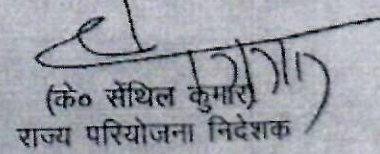 (के० सेंथिल कुमार)
राज्य परियोजना निदेशक